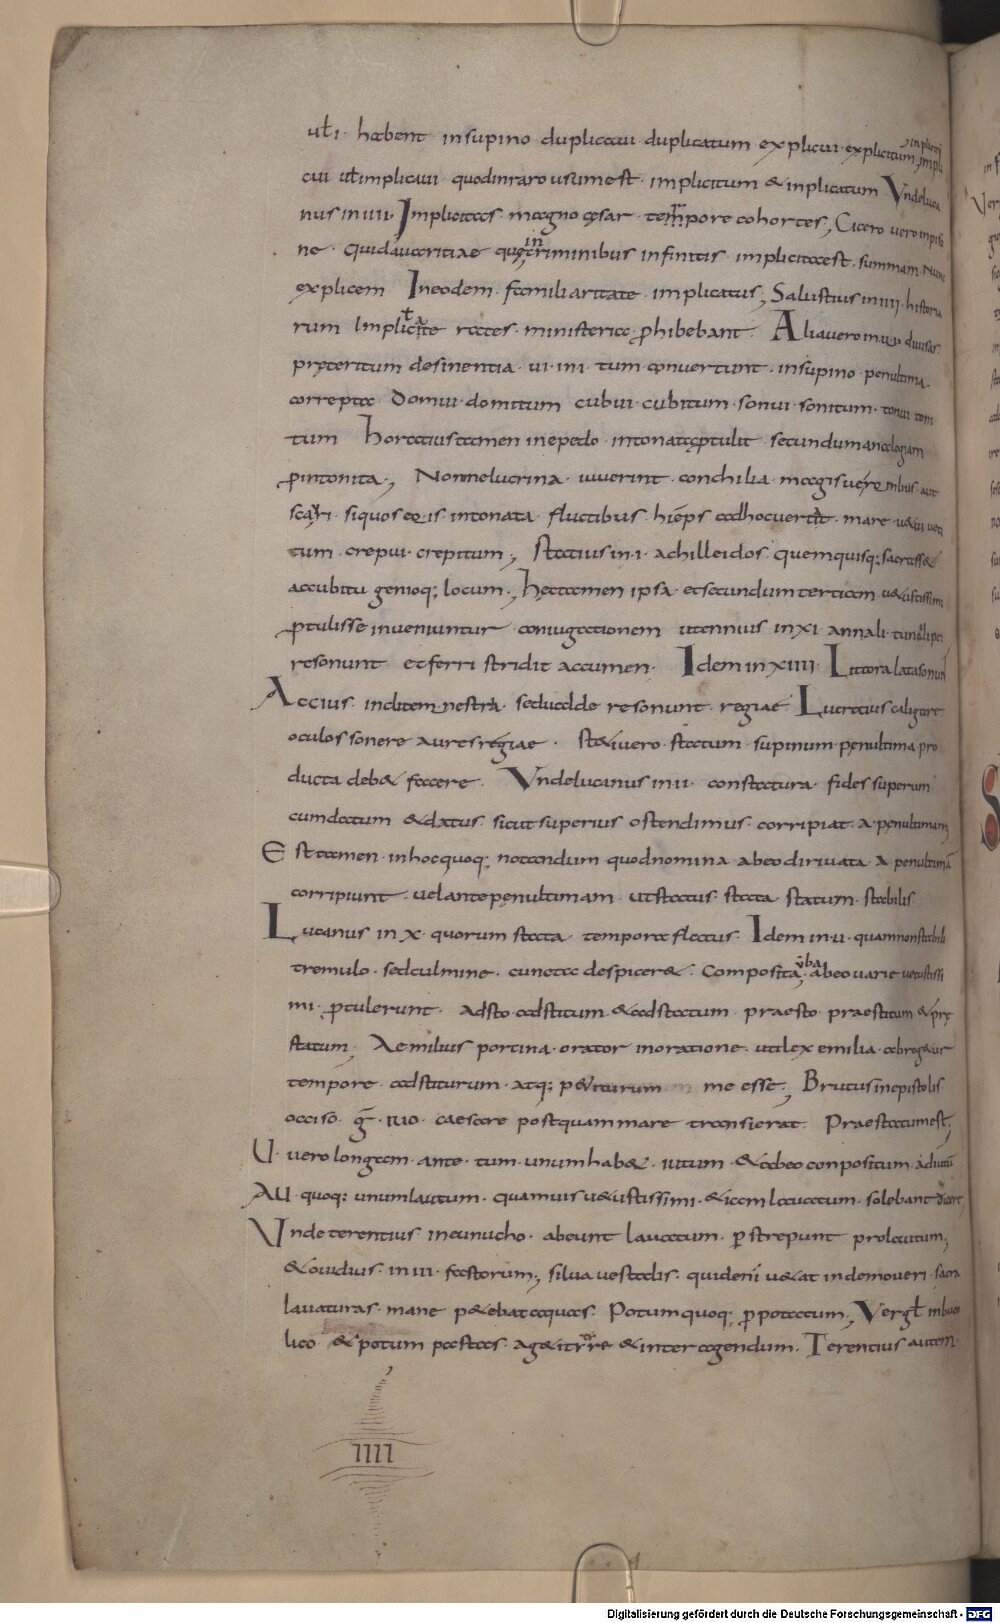 ul̄ i· habent insupino duplicaui duplicatum explicui· explicitum, impli
cui ul̄ implicaui· quodinraro usumest· implicitum & inplicatum Vndeluca
nus in iiii· Implicitas· magno cęsar· tempore cohortes, Cicero uero inpiso
ne· quidauaritiae quę in criminibus infinitis· implicitaest· summam Nunc
explicem Ineodem· familiaritate· implicatus; Salustius in iiii· historia
rum Implicatae rates· ministeria ꝓhibebant· Aliauero in ui diuisas
pręteritum desinentia· ui· in i· tum conuertunt· insupino· penultima·
correpta· Domui· domitum cubui· cubitum· sonui· sonitum· tonui toni
tum horatiustamen inepodo· intonataꝓtulit· secundumanalogiam
ꝓintonita, Nonmelucrina· iuuerint· conchilia· magisue rombus· aut
scari· siquos eois· intonata fluctibus· hiemps adhocuertat· mare· u&ui ueti
tum· crepui· crepitum, Statius in· i· achilleidos quemquisq; sacrass&
accubitu genioq; locum, hęctamen ipsa· etsecundumtertiam u&ustissimi
ꝓtulisse inueniuntur coniugationem utennius in xi annali· tuncclipei
resonunt et ferri stridit accumen· Idem in xiiii· Littora latasonunt
Accius· inditemnestra· seduadde resonunt regiae Lucretius caligare
oculos sonere aures regiae· St&i uero· statum· supinum· penultima pro
ducta deb& facere· Vndelucanus in ii· constatura· fides superum
cumdatum &datus· sicut superius ostendimus· corripiat· a· penultimam
Est tamen· inhocquoq; notandum quodnomina abeodiriuata· a penultimā
corripiunt· uelantepenultimam· utstatus· stata statum· stabilis
Lucanus in x· quorum stata tempora flatus· Idem in· u· quamnonstabili
tremulo· sedculmine· cuncta despicere&· Composita, uba abeo uarie uetustissi
mi· ꝓtulerunt· adsto· adstitum &adstatum· praesto· praestitum &prę
statum· Aemilius porcina· orator inoratione· utilex emilia· abrog&ur
tempore· adstiturum· atq; p&iturum me esse; Brutusinepistolis
occiso· ḡ· ruo· caesare postquammare transierat· Praestatumest;
U· uero longam· ante· tum· unum hab&· iutum· &abeo conpositum· adiutū
AU· quoq; unumlautum· quamuis u&ustissimi· &iam lauatum· solebant dicere,
Vnde terentius· ineunucho· abeunt lauatum· ꝑstrepunt prolautum;
&ouidius· in iii· fastorum; silua uestalis· quideni u&at indemoueri· sacra
lauaturas· mane p&ebataquas· Potumquoq; ꝓpotatum; Vergl̄ inbuco
lico &potum pastas· ag&itire &interagendum· Terentius autem·
IIII
Digitalisierung gefördert durch die Deutsche Forschungsgemeinschaft - DFG